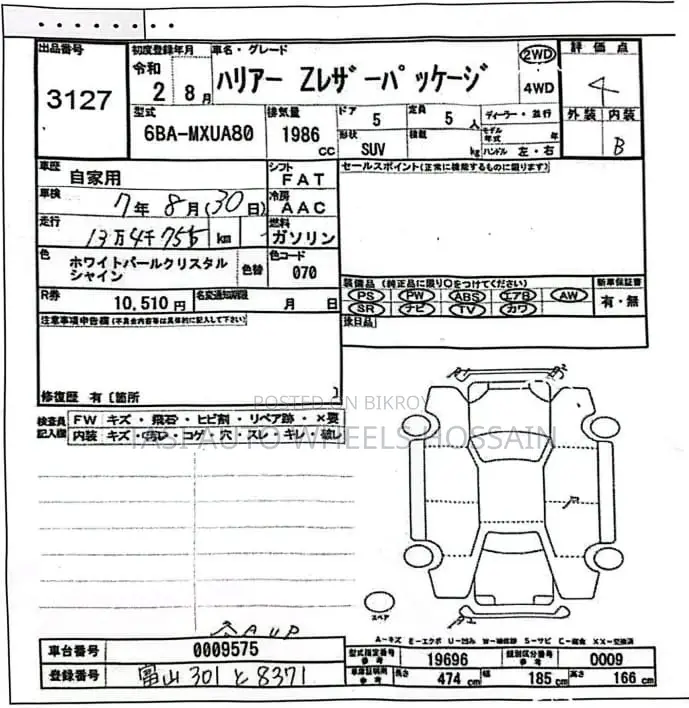 出品番号 3127
初度登録年月 令和 2年 8月
車名・グレード ハリアー Zレザーパッケージ
2WD
4WD
評価点 4
外装 内装 B
型式 6BA-MXUA80
排気量 1986 cc
ドア 5
定員 5人
形状 SUV
積載 kg
ディーラー・並行
モデル年式 年
ハンドル 左・右
車歴 自家用
シフト FAT
車検 7年 8月(30日)
冷房 AAC
走行 13万4千755 km
燃料 ガソリン
色 ホワイトパールクリスタルシャイン
色替
色コード 070
R券 10,510円
名変通知期限 月 日
セールスポイント(正常に機能するものに限ります)
装備品(純正品に限り○をつけてください)
PS PW ABS エアB AW
SR ナビ TV カワ
新車保証書 有・無
注意事項申告欄(不具合内容等は具体的に記入して下さい)
修復歴 有〔箇所 〕
検査員記入欄
FW キズ・飛石・ヒビ割・リペア跡・×要
内装 キズ・汚レ・コゲ・穴・スレ・キレ・破レ
POSTED ON BIKROY
TASI AUTO WHEELS HOSSAIN
スペア
A-キズ E-エクボ U-凹み W-補修跡 S-サビ C-腐食 XX-交換済
車台番号 0009575
登録番号 富山 301 と 8371
型式指定番号 参考 19696
類別区分番号 参考 0009
長さ 474 cm
幅 185 cm
高さ 166 cm